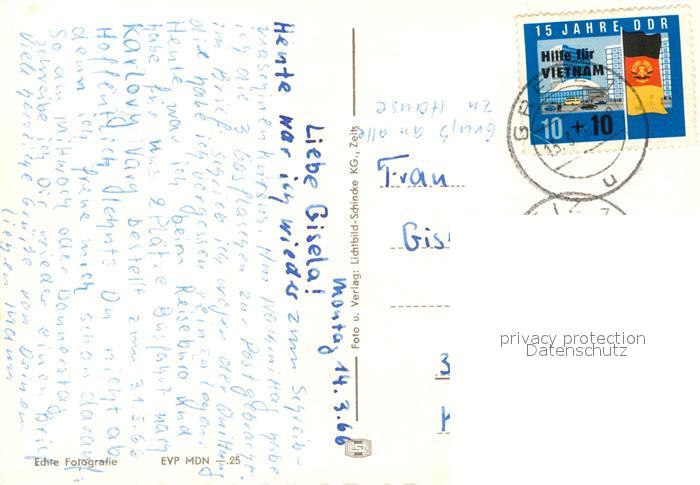 Montag 14.3.66
Liebe Gisela!
Heute war ich wieder zum Schreib-
maschinen Kursus. Am Nachmittag habe
ich die 3 Gasflaschen zur Post gebracht.
im Brief schrieb ich wegen der Quittung
die habe ich vergessen reinzulegen
Heute war ich beim Reisebüro und
habe für uns 2 Plätze Busfahrt nach
Karlovy Vary bestellt zum 31.5.66
Hoffentlich lehnst Du nicht ab
denn ich freue mich schon darauf.
So am Mittwoch oder Donnerstag
schreibe ich Dir wieder einen Brief
Viele herzliche Grüße von Deinem
lieben Mann
Gruß an alle
zu Hause
Frau
Gis
Foto u. Verlag: Lichtbild-Schincke KG., Zeitz
Echte Fotografie EVP MDN —.25
15 JAHRE DDR
Hilfe für
VIETNAM
10 + 10
GREIZ
privacy protection
Datenschutz